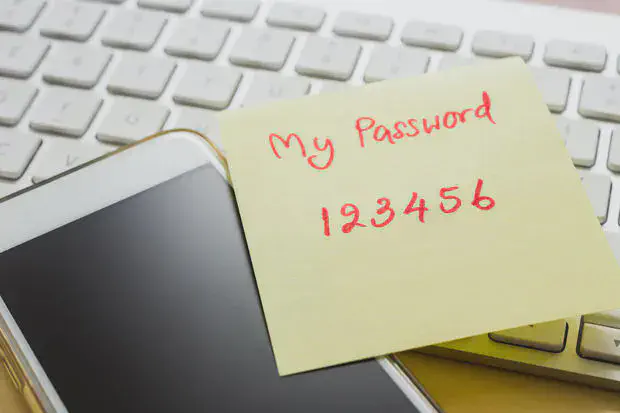 My Password
123456